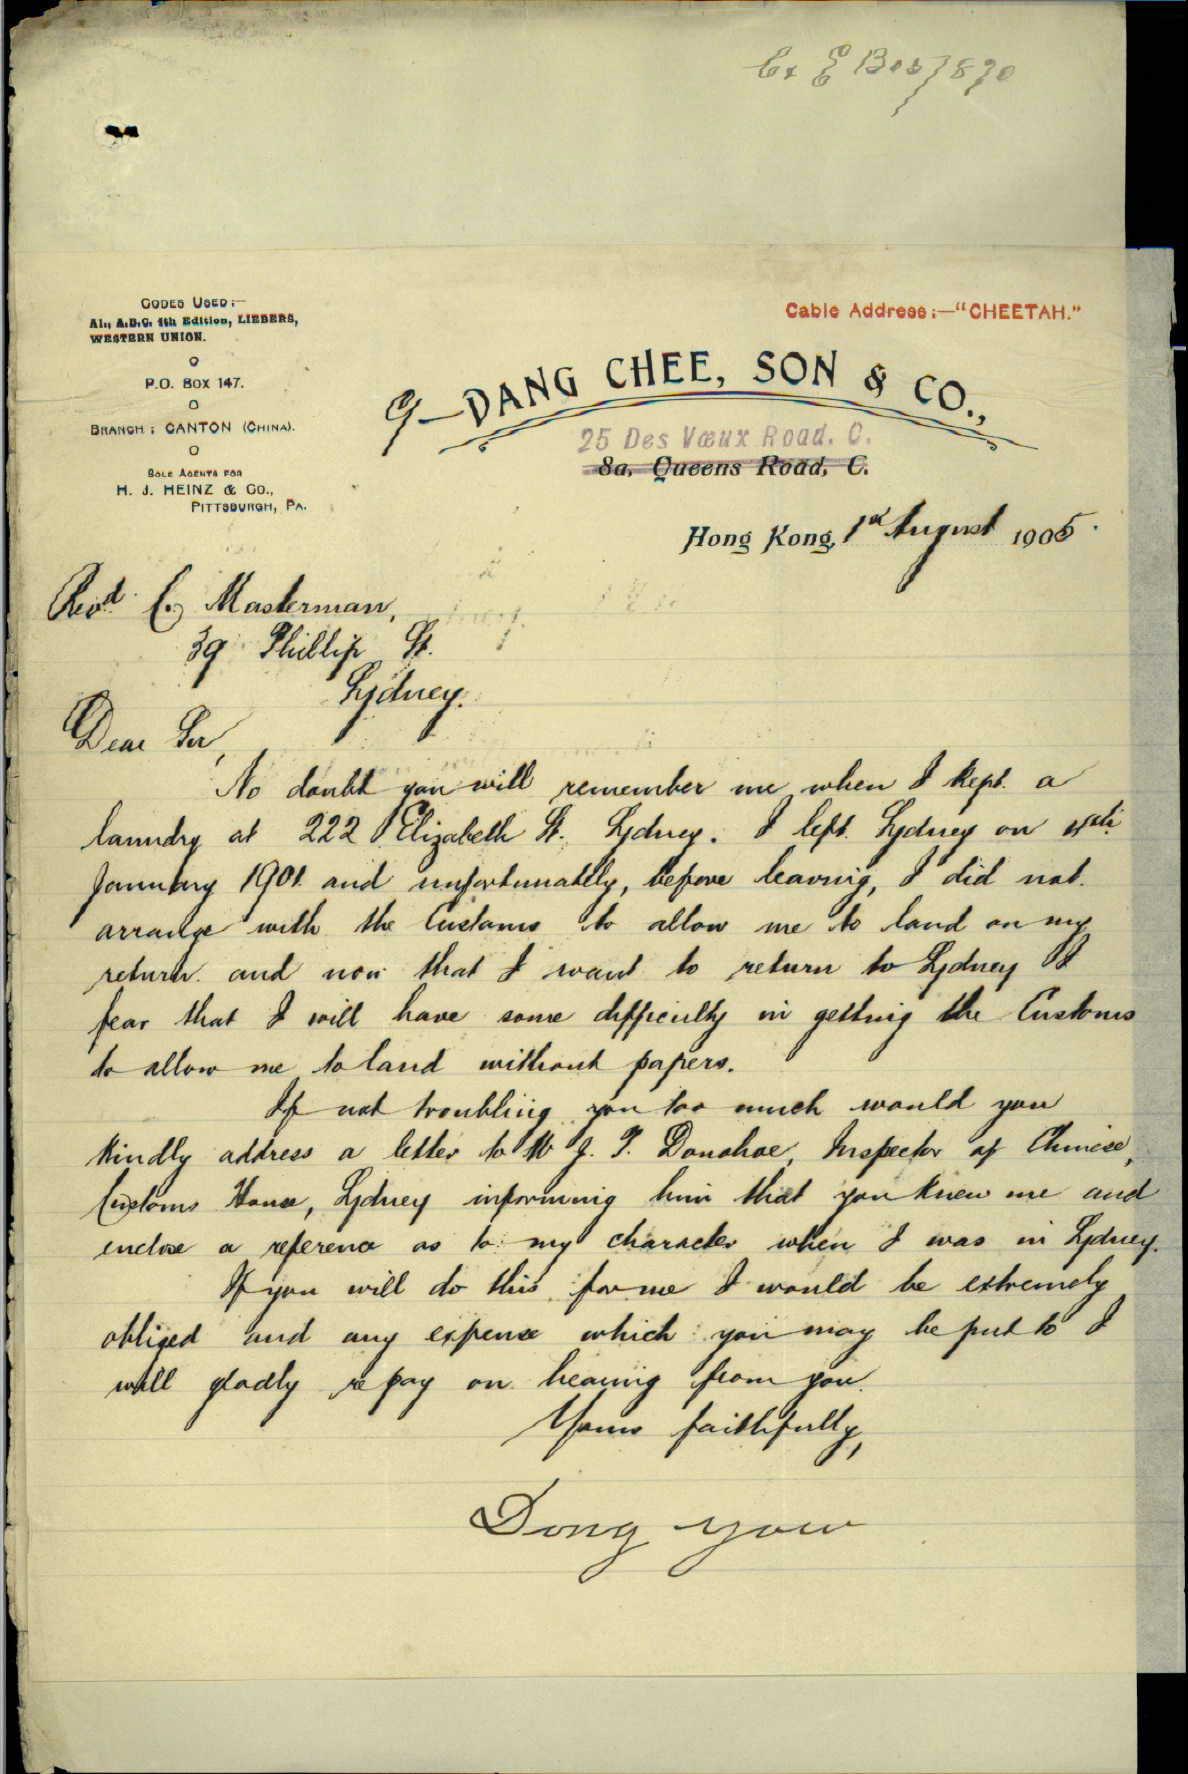 CODES USED:—
A1., A.B.C. 4th Edition, LIEBERS,
WESTERN UNION.
P.O. BOX 147.
BRANCH: CANTON (CHINA).
SOLE AGENTS FOR
H. J. HEINZ & CO.,
PITTSBURGH, PA.
Cable Address:—"CHEETAH."
DANG CHEE, SON & CO.,
25 Des Vœux Road. C.
8a, Queens Road, C.
Hong Kong, 1st August 1905.
Revd. C. Masterman,
39 Phillip St.
Sydney.
Dear Sir,
No doubt you will remember me when I kept a
laundry at 222 Elizabeth St. Sydney. I left Sydney on
January 1901 and unfortunately, before leaving, I did not
arrange with the Customs to allow me to land on my
return and now that I want to return to Sydney I
fear that I will have some difficulty in getting the Customs
to allow me to land without papers.
If not troubling you too much would you
kindly address a letter to Mr J. T. Donohoe, Inspector of Chinese,
Customs House, Sydney informing him that you knew me and
enclose a reference as to my character when I was in Sydney.
If you will do this for me I would be extremely
obliged and any expense which you may be put to I
will gladly repay on hearing from you.
Yours faithfully,
Dong Yow